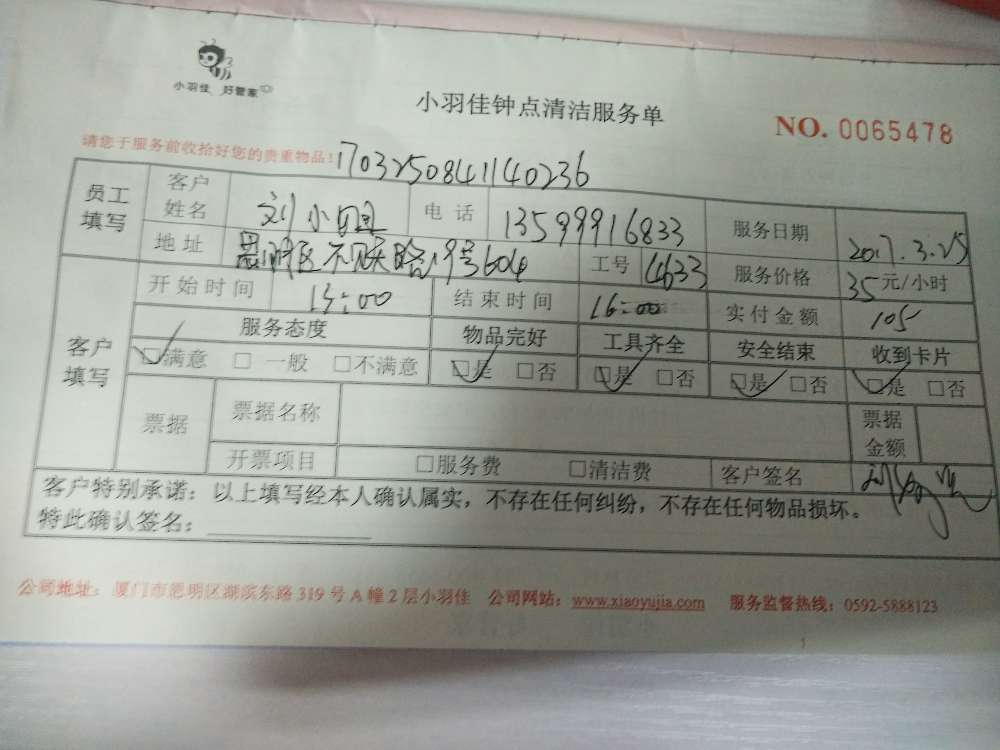 小羽佳 好管家
小羽佳钟点清洁服务单
NO. 0065478
请您于服务前收拾好您的贵重物品!
17032508411140236
员工填写 客户姓名 刘小 电话 13599916833 服务日期 2017.3.25
地址 思明区不见天 19号604 工号 4633 服务价格 35元/小时
客户填写 开始时间 13:00 结束时间 16:00 实付金额 105
服务态度 物品完好 工具齐全 安全结束 收到卡片
□满意 □一般 □不满意 □是 □否 □是 □否 □是 □否 □是 □否
票据 票据名称 票据金额
开票项目 □服务费 □清洁费 客户签名
客户特别承诺：以上填写经本人确认属实，不存在任何纠纷，不存在任何物品损坏。
特此确认签名：
公司地址：厦门市思明区湖滨东路319号A幢2层小羽佳 公司网站：www.xiaoyujia.com 服务监督热线：0592-5888123